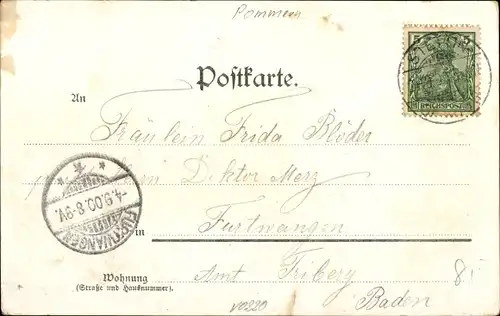 Pommern
5 5
REICHSPOST
Postkarte.
An
Fräulein Frida Blöder
bei Doktor Merz
FURTWANGEN
-4.9.00.8-9V.
in
Furtwangen
Amt Triberg
8.-
Wohnung
(Straße und Hausnummer).
Baden
V0220